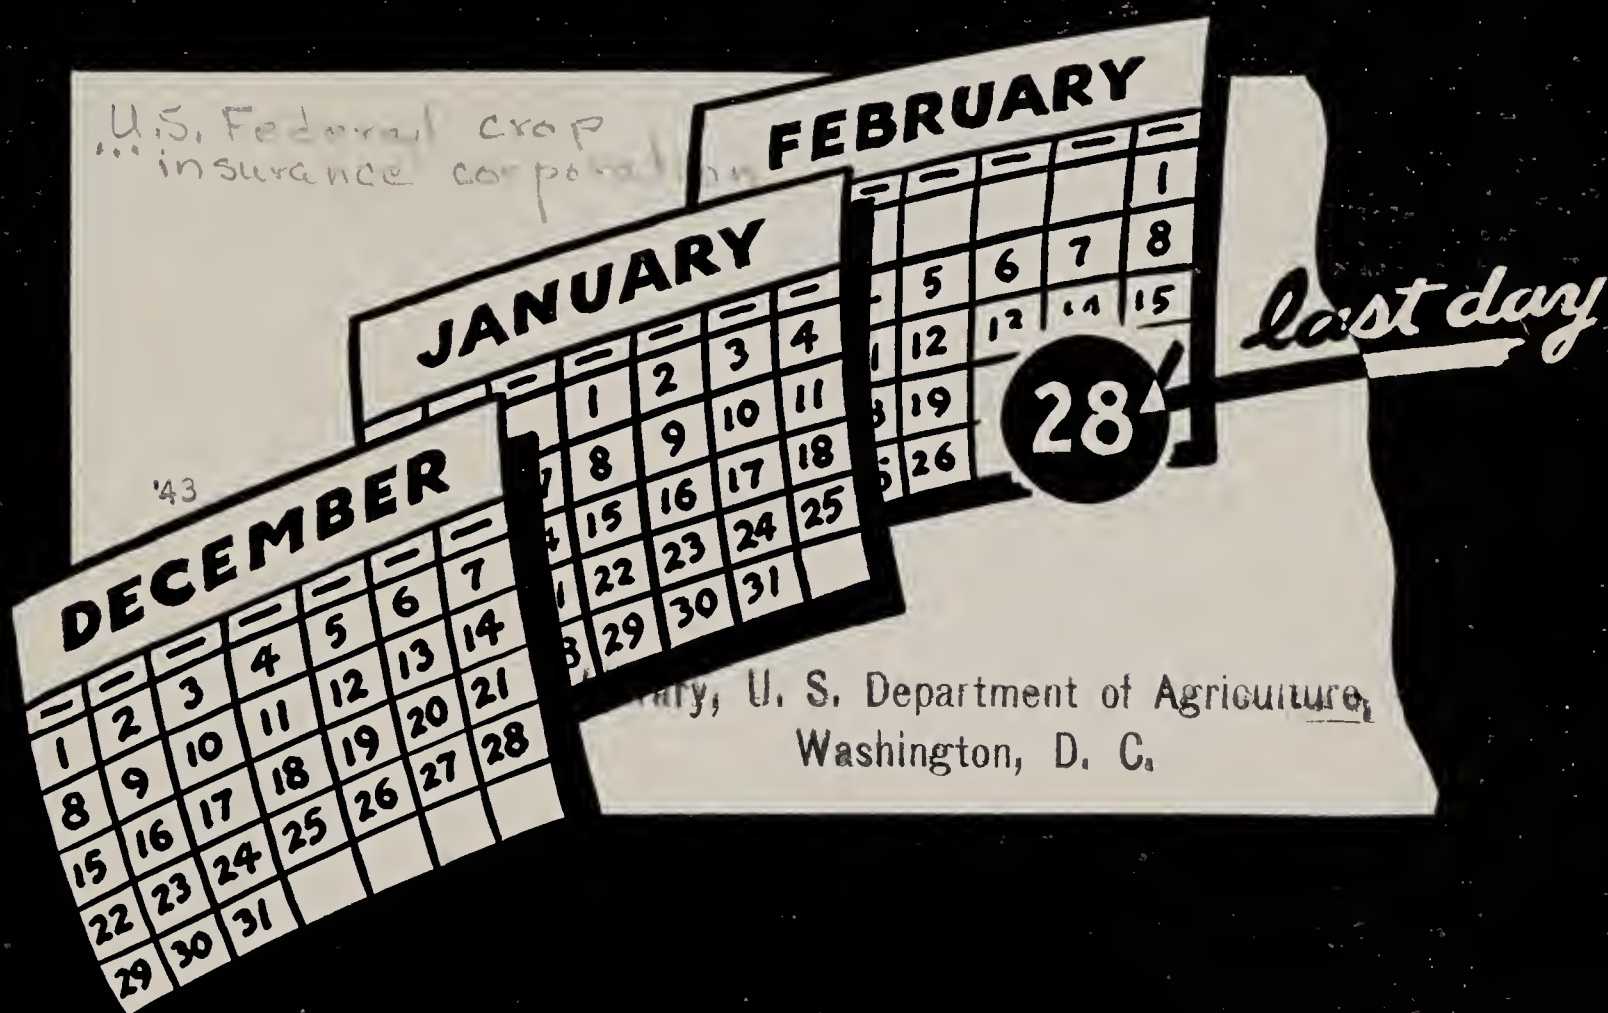 U.S. Federal crop
insurance corporation
FEBRUARY
1
5 6 7 8
12 13 14 15
19
26
28
last day
JANUARY
1 2 3 4
8 9 10 11
15 16 17 18
22 23 24 25
29 30 31
'43
DECEMBER
1 2 3 4 5 6 7
8 9 10 11 12 13 14
15 16 17 18 19 20 21
22 23 24 25 26 27 28
29 30 31
U. S. Department of Agriculture,
Washington, D. C.